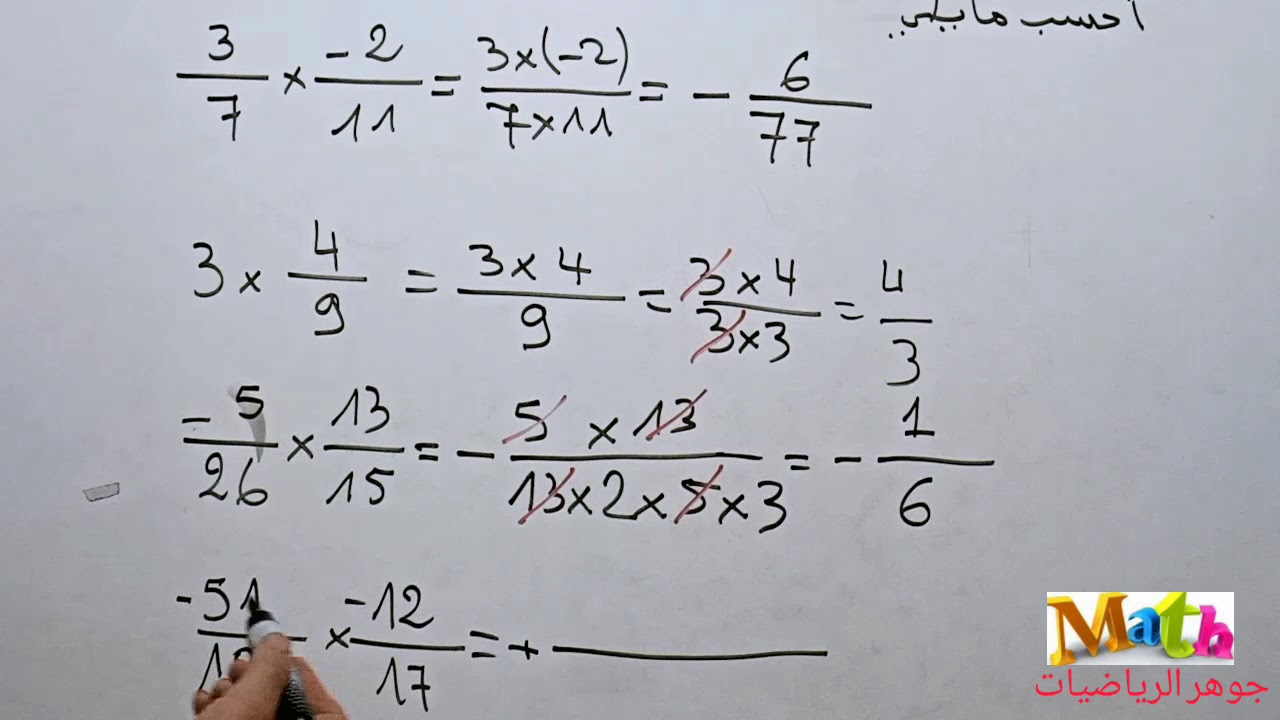 أحسب ما يلي
3/7 × -2/11 = 3×(-2)/7×11 = - 6/77
3 × 4/9 = 3×4/9 = 3×4/3×3 = 4/3
-5/26 × 13/15 = - 5×13/13×2×5×3 = - 1/6
-51/ × -12/17 = +
Math
جوهر الرياضيات